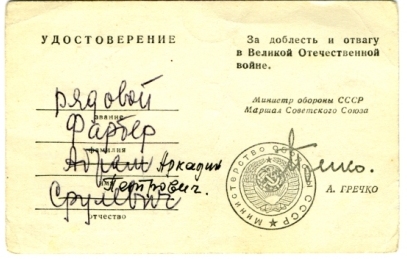 УДОСТОВЕРЕНИЕ
рядовой
звание
Фарбер
фамилия
Абрам Аркадий
Петрович.
Срулевич
отчество
За доблесть и отвагу
в Великой Отечественной
войне.
Министр обороны СССР
Маршал Советского Союза
А. ГРЕЧКО
МИНИСТЕРСТВО ОБОРОНЫ СССР